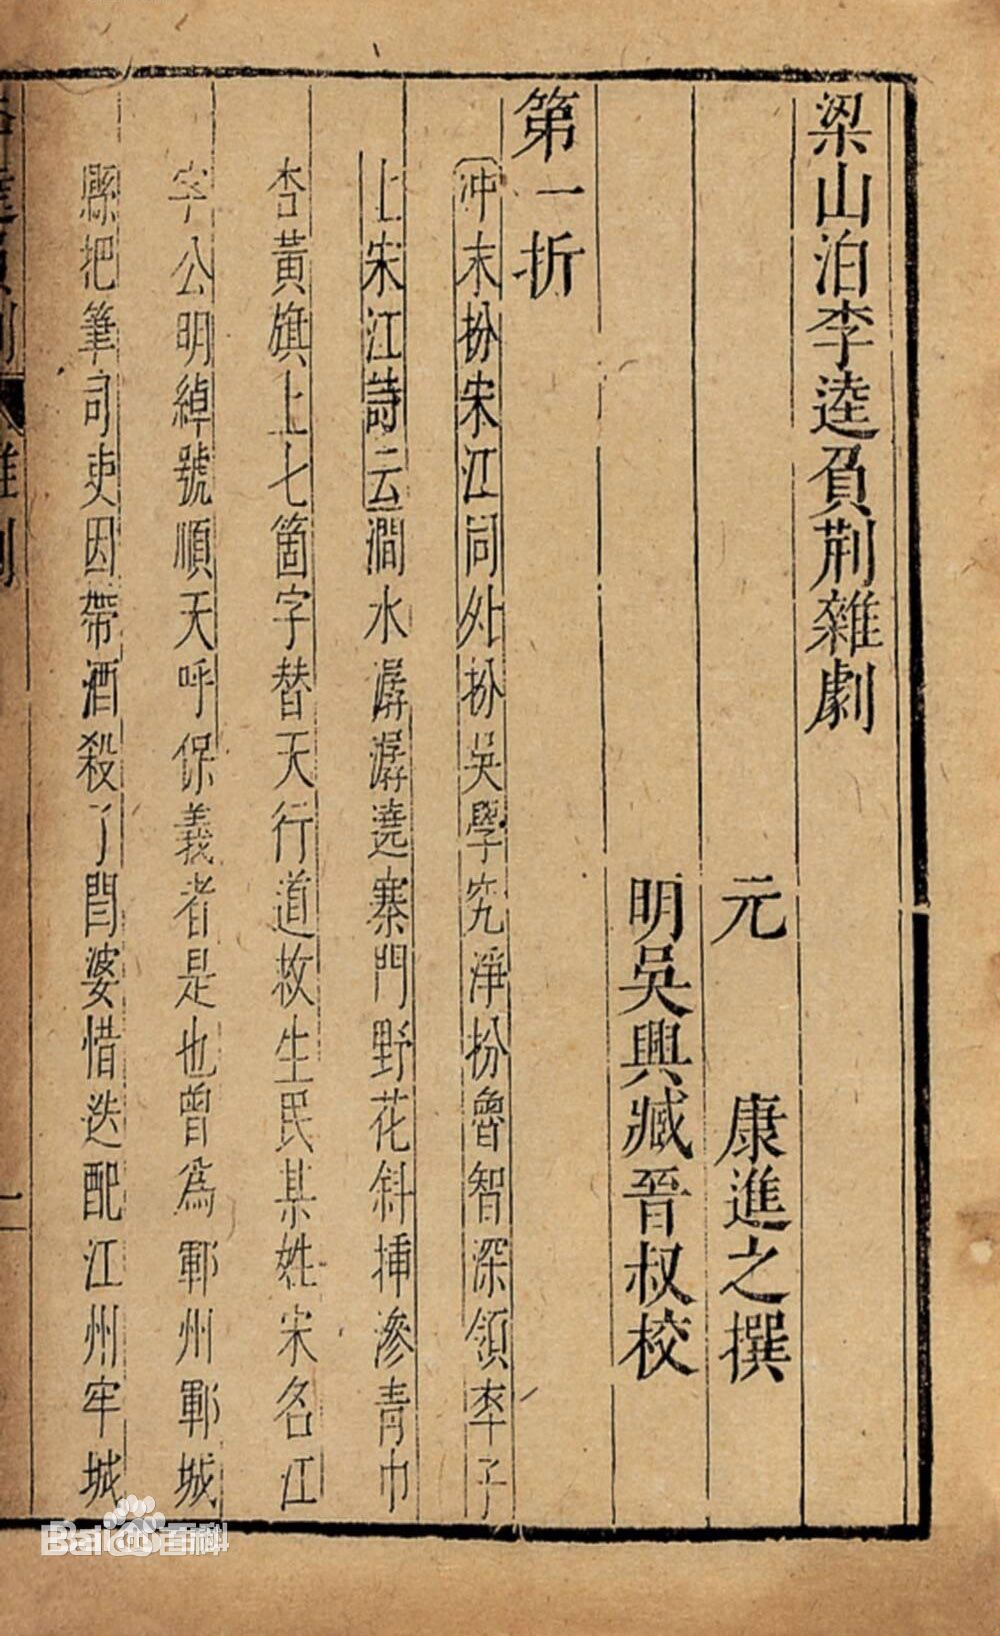 梁山泊李逵負荆雜劇
元 康進之撰
明吳興臧晉叔校
第一折
冲末扮宋江同外扮吳學究淨扮魯智深領卒子
上宋江詩云澗水潺潺遶寨門野花斜插滲青巾
杏黃旗上七箇字替天行道救生民某姓宋名江
字公明綽號順天呼保義者是也曾為鄆州鄆城
縣把筆司吏因帶酒殺了閻婆惜迭配江州牢城
Baidu百科